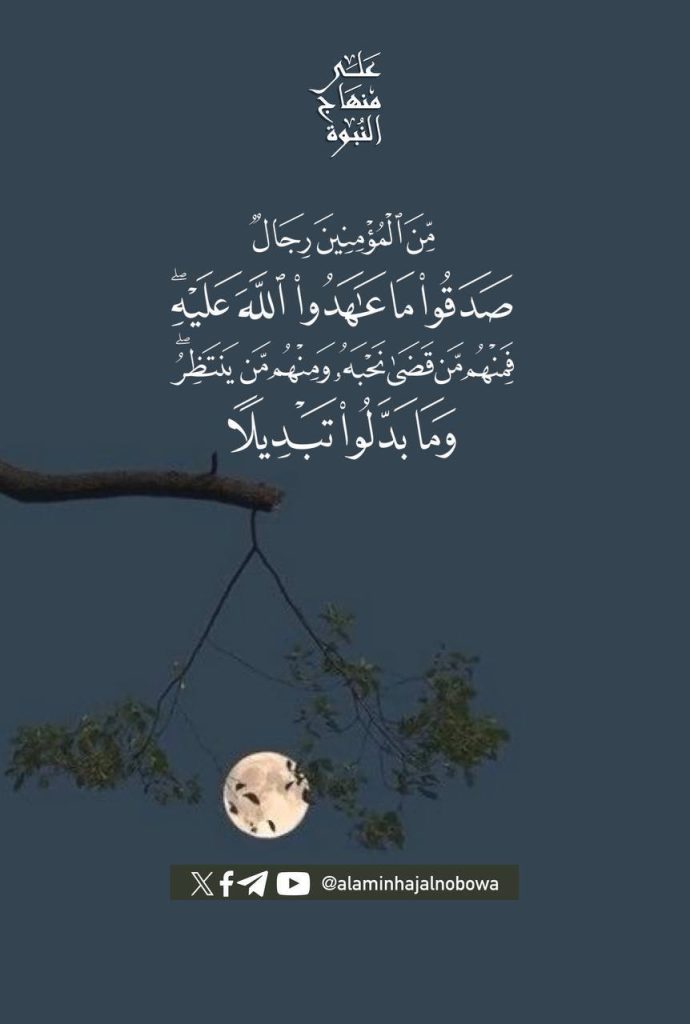 على
منهاج
النبوة
مِّنَ ٱلْمُؤْمِنِينَ رِجَالٌ
صَدَقُوا۟ مَا عَـٰهَدُوا۟ ٱللَّهَ عَلَيْهِ ۖ
فَمِنْهُم مَّن قَضَىٰ نَحْبَهُۥ وَمِنْهُم مَّن يَنتَظِرُ ۖ
وَمَا بَدَّلُوا۟ تَبْدِيلًا
@alaminhajalnobowa